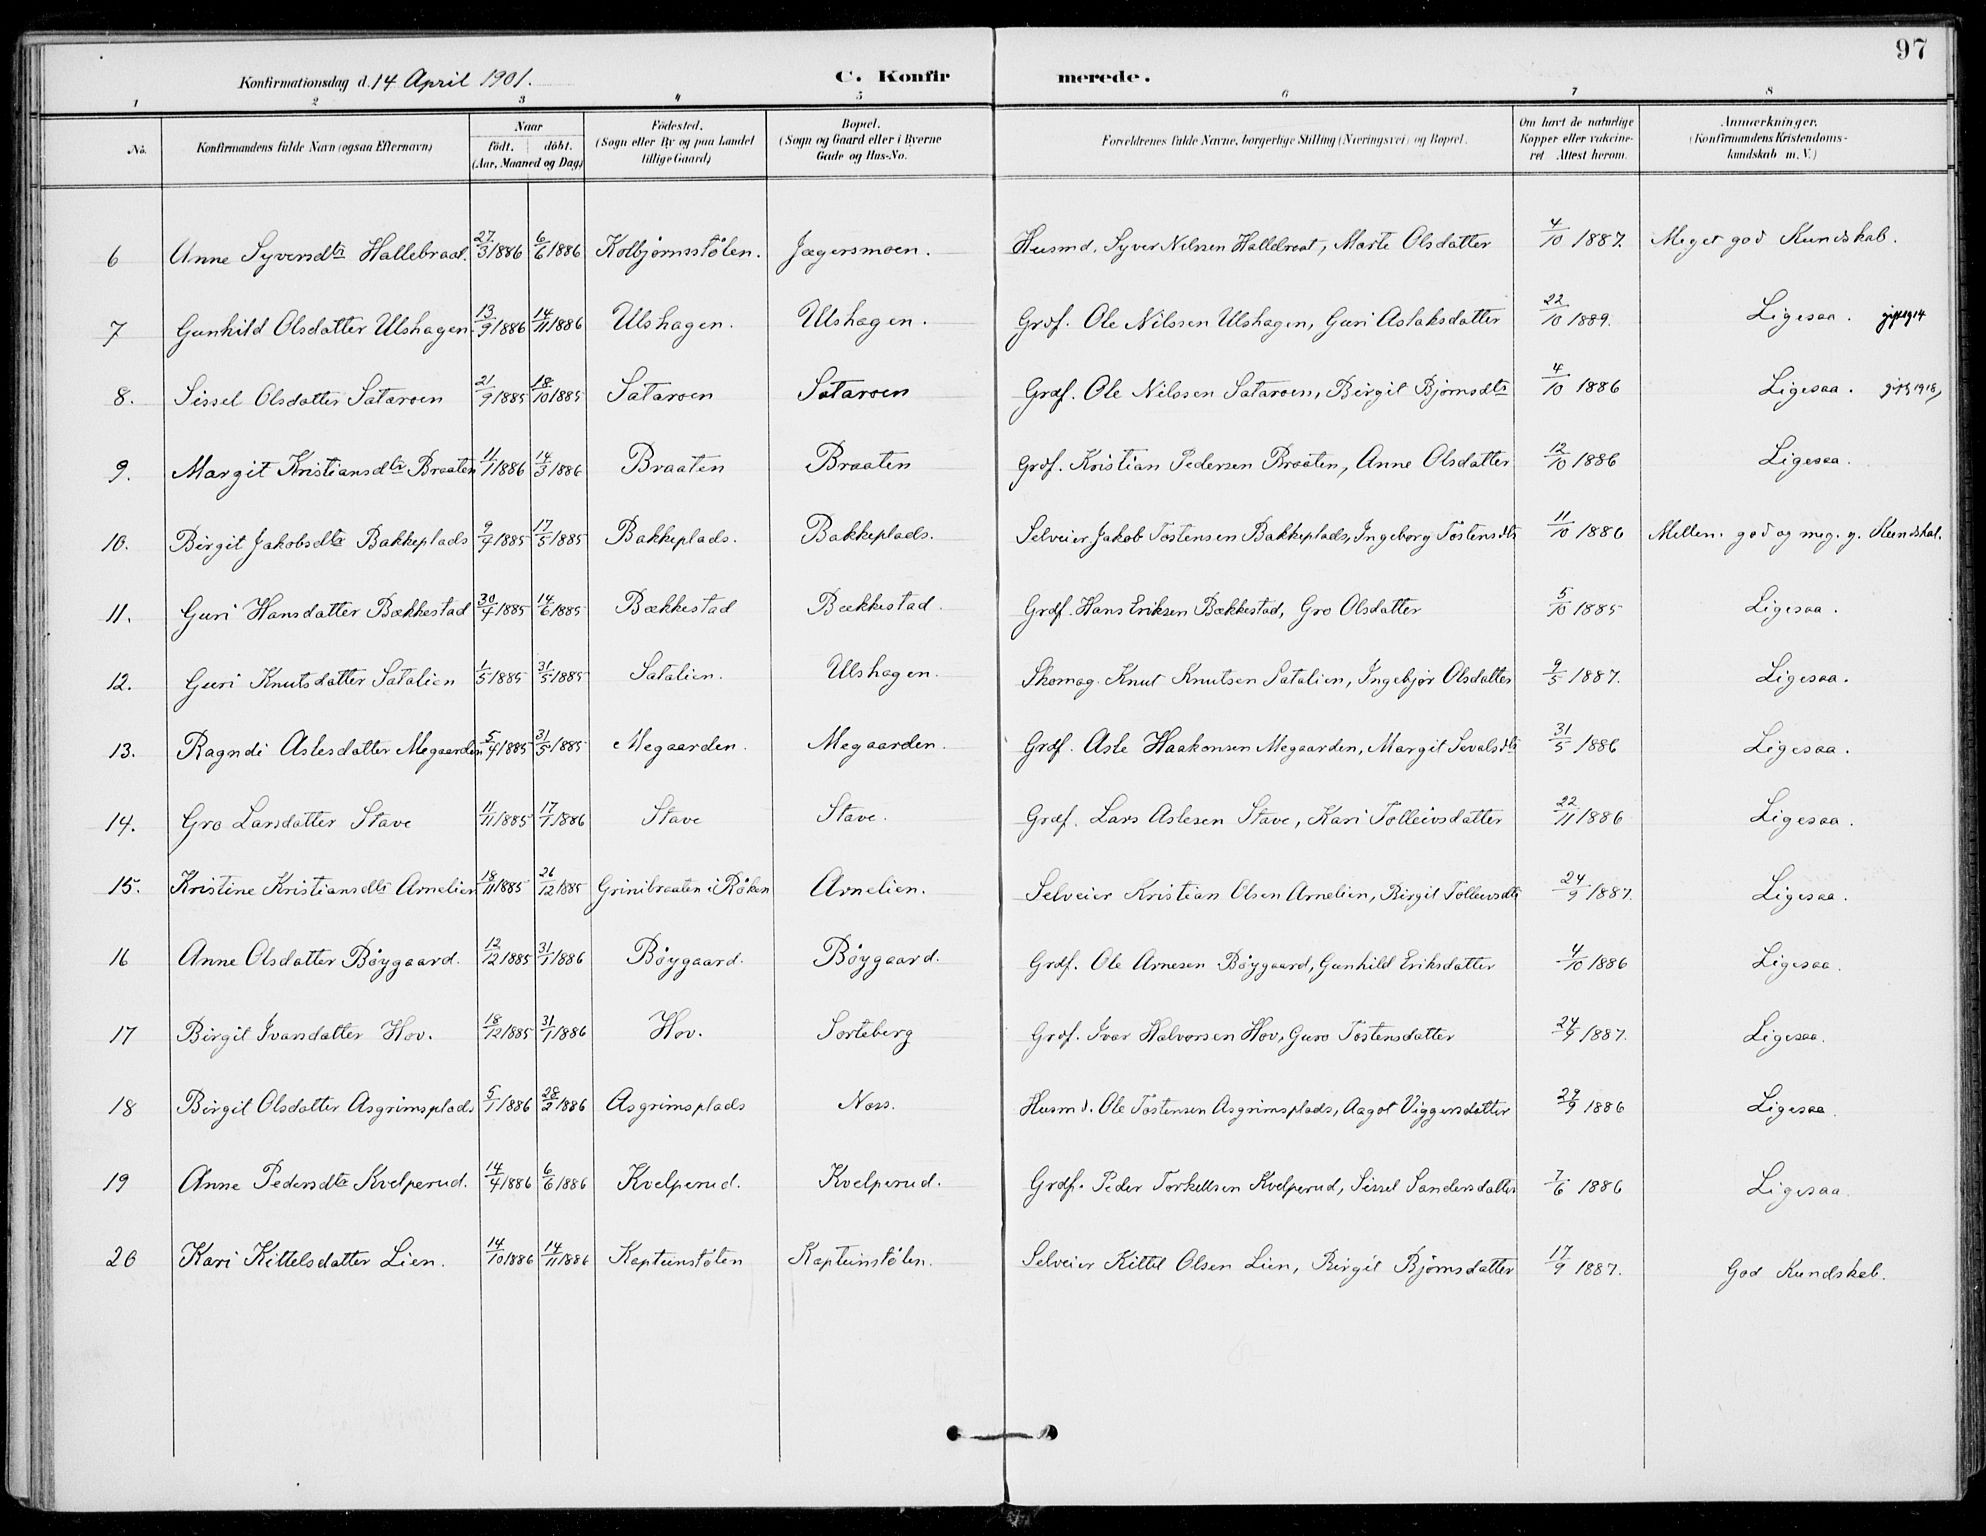 97
Konfirmationsdag d. 14 April 1901.
C. Konfirmerede.
1 2 3 4 5 6 7 8
No. | Konfirmandens fulde Navn (ogsaa Efternavn) | Naar født. døbt. (Aar, Maaned og Dag) | Fødested. (Sogn eller By og paa Landet tillige Gaard) | Bopæl. (Sogn og Gaard eller i Byerne Gade og Hus-No. | Forældrenes fulde Navne, borgerlige Stilling (Næringsvei) og Bopæl. | Om havt de naturlige Kopper eller vakcineret Attest herom. | Anmærkninger. (Konfirmandens Kristendomskundskab m. V.)
6 Anne Syversdtr Hallebraat. 27/3 1886 6/6 1886 Kolbjørnsstølen. Jægersmoen. Husmd. Syver Nilssen Hallebraat, Marte Olsdatter 4/10 1887. Meget god Kundskab.
7 Gunhild Olsdatter Ulshagen 13/9 1886 14/11 1886 Ulshagen. Ulshagen. Grdf. Ole Nilssen Ulshagen, Guri Aslaksdatter 22/10 1889. Ligesaa. gift 1914
8. Sissel Olsdatter Sataroen 21/9 1885 18/10 1885 Sataroen Sataroen Grdf. Ole Nilssen Sataroen, Birgit Bjørnsdtr 4/10 1886 Ligesaa. gift 1918
9. Margit Kristiansdtr Braaten 11/1 1886 14/3 1886 Braaten Braaten Grdf. Kristian Pedersen Braaten, Anne Olsdatter 12/10 1886 Ligesaa.
10. Birgit Jakobsdtr Bakkeplads 9/4 1885 17/5 1885 Bakkeplads. Bakkeplads. Selveier Jakob Tostensen Bakkeplads, Ingeborg Tostensdtr 11/10 1886 Mellem god og meg. g. Kundskab.
11. Guri Hansdatter Bækkestad 30/4 1885 14/6 1885 Bækkestad Bækkestad. Grdf. Hans Eriksen Bækkestad, Gro Olsdatter 5/10 1885 Ligesaa.
12. Guri Knutsdatter Satalien 1/5 1885 31/5 1885 Satalien. Ulshagen. Skomag. Knut Knutsen Satalien, Ingebjør Olsdatter 9/5 1887. Ligesaa.
13. Ragndi Aslesdatter Megaarden 5/4 1885 31/5 1885 Megaarden. Megaarden. Grdf. Asle Haakonsen Megaarden, Margit Sevalsdtr 31/5 1886 Ligesaa.
14. Gro Larsdatter Stave 11/11 1885 17/1 1886 Stave Stave. Grdf. Lars Aslesen Stave, Kari Tolleivsdatter 22/11 1886 Ligesaa.
15. Kristine Kristiansdtr Arnelien 18/11 1885 26/12 1885 Grinibraaten i Røken Arnelien. Selveier Kristian Olsen Arnelien, Birgit Tolleivsdtr 24/9 1887. Ligesaa.
16 Anne Olsdatter Bøygaard. 12/12 1885 31/1 1886 Bøygaard. Bøygaard. Grdf. Ole Arnesen Bøygaard, Gunhild Eriksdatter 4/10 1886 Ligesaa.
17 Birgit Ivarsdatter Hov. 18/12 1885 31/1 1886 Hov. Sorteberg Grdf. Ivar Halvorsen Hov, Guro Tostensdatter 24/9 1887. Ligesaa.
18 Birgit Olsdatter Asgrimsplads 5/1 1886 28/2 1886 Asgrimsplads Næss. Husmd. Ole Tostensen Asgrimsplads, Aagot Viggersdatter 29/9 1886 Ligesaa.
19 Anne Pedersdtr Kvelperud. 14/4 1886 6/6 1886 Kvelperud. Kvelperud. Grdf. Peder Torkelsen Kvelperud, Sissel Sandersdatter 7/6 1886 Ligesaa.
20 Kari Kittelsdatter Lien. 14/10 1886 14/11 1886 Kapteinstølen Kapteinstølen. Selveier Kittel Olsen Lien, Birgit Bjørnsdatter 17/9 1887. God Kundskab.